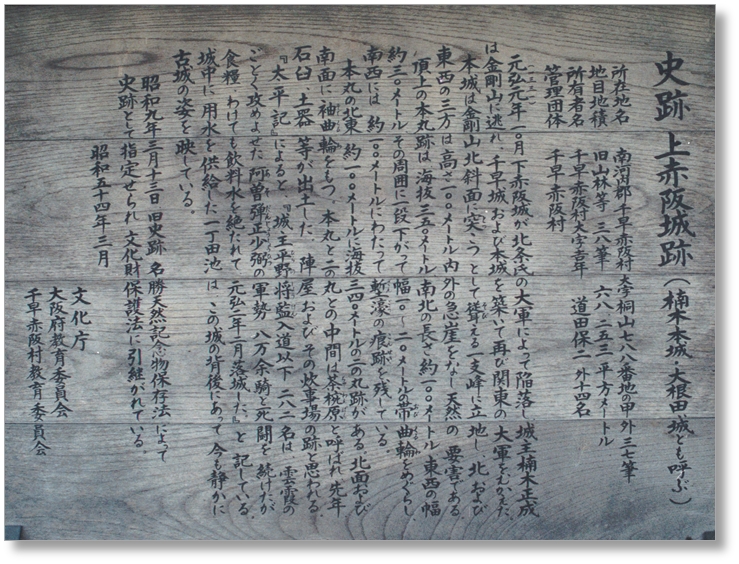 史跡 上赤阪城跡（楠木本城・大根田城とも呼ぶ）
所在地名 南河内郡千早赤阪村大字桐山七八八番地の甲 外三七筆
地目地積 旧山林等 三八筆 六八二五三平方メートル
所有者名 千早赤阪村大字吉年 道田保二 外十四名
管理団体 千早赤阪村
元弘元年一〇月 下赤阪城が北条氏の大軍によって陥落し 城主楠木正成
は金剛山に逃れ 千早城 および本城を築いて再び関東の 大軍をむかえた。
本城は金剛山北斜面に突こうとして聳える一支峰に立 地し 北および
東西の三方は高さ二〇〇メートル内外の急崖をなし 天然の 要害である
頂上の本丸跡は 海抜三五〇メートル 南北の長さ約一〇〇メートル 東西の幅
約三〇メートル その周囲に一段下がって幅一〇〜二〇メートルの帯曲輪をめぐらし
南西には 約一〇〇メートルにわたって 塹濠の痕跡を残している。
本丸の北東 約一〇〇メートルに海抜 三四〇メートルの二の丸跡がある 北面および
南面に袖曲輪をもつ。本丸と二の丸との中間は茶椀原と呼ばれ 先年
石臼 土器 等が出土した。陣屋およびその炊事場の跡と思われる。
『太平記』によると『城主平野将監入道以下 二八二名は 雲霞の
ごとく攻めよせた 阿曽弾正少弼の軍勢 八万余騎と死闘を続けたが
食糧 わけても飲料水を絶たれて 元弘二年二月落城した』と記している。
城中に用水を供給した一丁田池は この城の背後にあって 今も静かに
古城の姿を映している。
昭和九年三月十三日 旧史跡 名勝天然記念物保存法によって
史跡として指定せられ 文化財保護法に引継がれている。
昭和五十四年三月
文化庁
大阪府教育委員会
千早赤阪村教育委員会